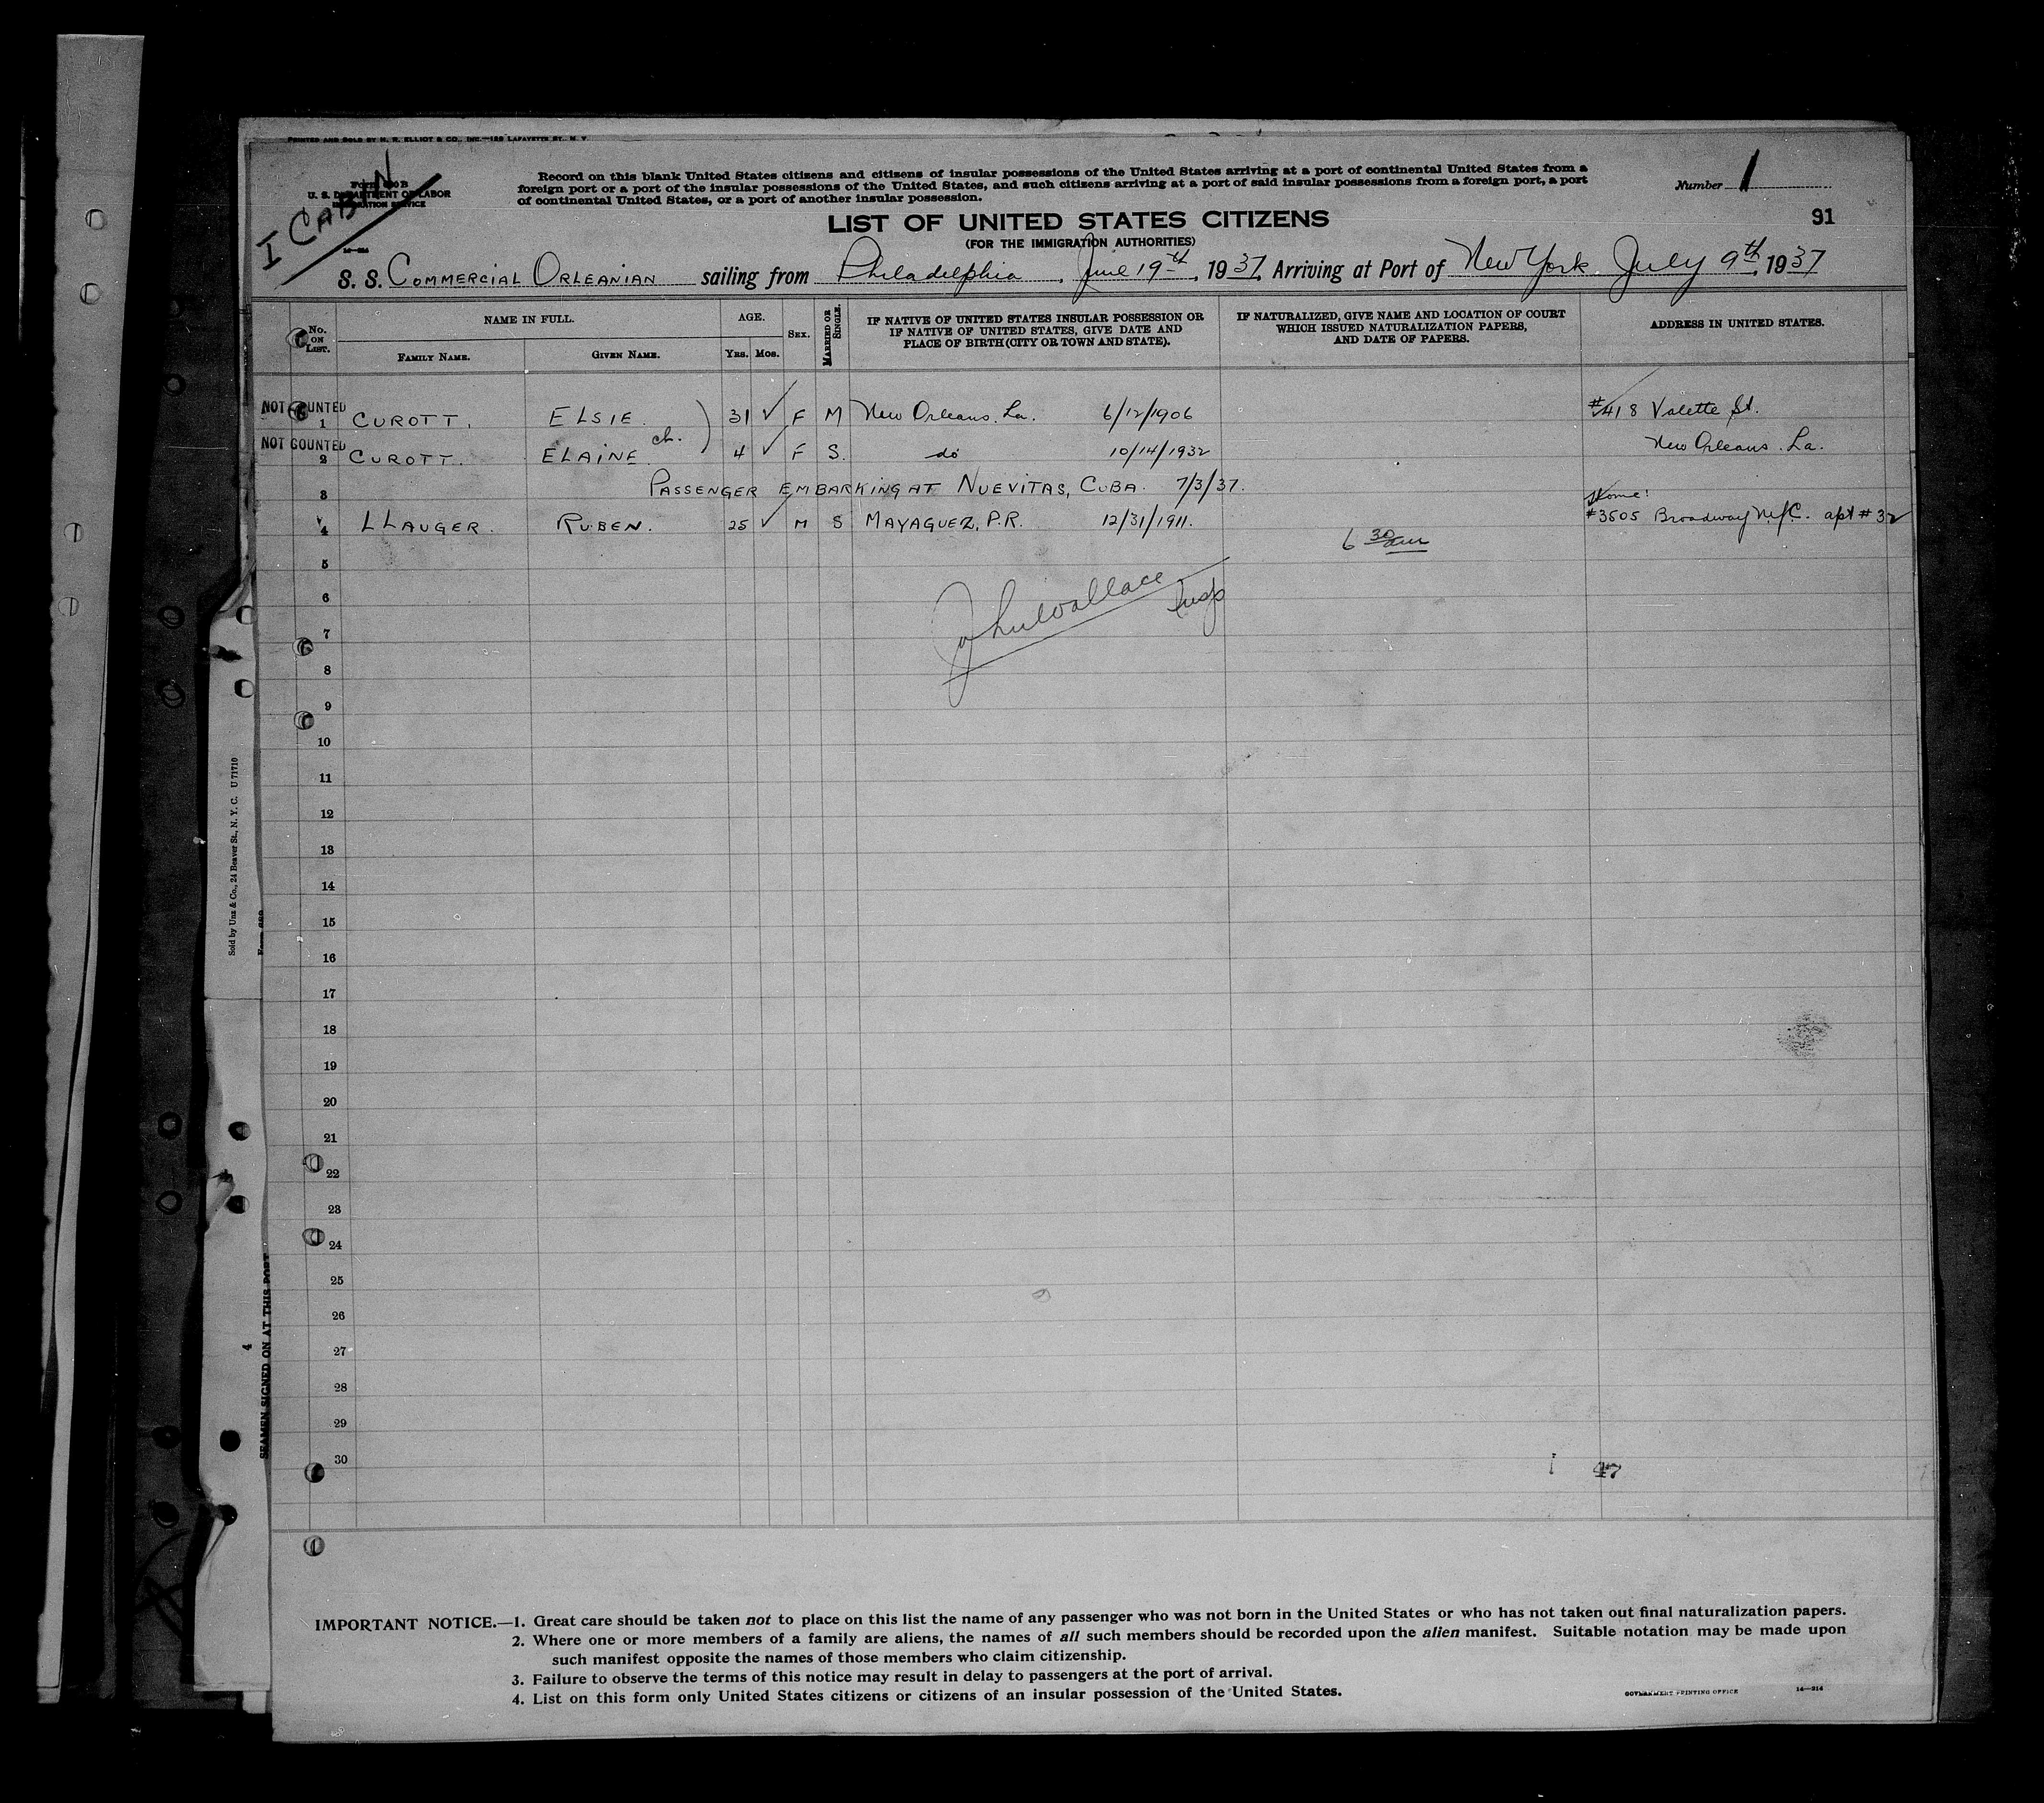 PRINTED AND SOLD BY H. R. ELLIOT & CO., INC.—129 LAFAYETTE ST., N. Y
I CABIN
U. S. DEPARTMENT OF LABOR
IMMIGRATION SERVICE
Record on this blank United States citizens and citizens of insular possessions of the United States arriving at a port of continental United States from a
foreign port or a port of the insular possessions of the United States, and such citizens arriving at a port of said insular possessions from a foreign port, a port
of continental United States, or a port of another insular possession.
Number 1
91
LIST OF UNITED STATES CITIZENS
(FOR THE IMMIGRATION AUTHORITIES)
S. S. COMMERCIAL ORLEANIAN sailing from Philadelphia, June 19th, 1937, Arriving at Port of New York July 9th, 1937
No. ON LIST.
NAME IN FULL.
FAMILY NAME.
GIVEN NAME.
AGE.
YRS. MOS.
SEX.
MARRIED OR SINGLE.
IF NATIVE OF UNITED STATES INSULAR POSSESSION OR
IF NATIVE OF UNITED STATES, GIVE DATE AND
PLACE OF BIRTH (CITY OR TOWN AND STATE).
IF NATURALIZED, GIVE NAME AND LOCATION OF COURT
WHICH ISSUED NATURALIZATION PAPERS,
AND DATE OF PAPERS.
ADDRESS IN UNITED STATES.
NOT COUNTED
1 CUROTT, ELSIE. 31 ✓ F M New Orleans. La. 6/12/1906 #418 Valette St.
NOT COUNTED
2 CUROTT. ELAINE. ch. 4 ✓ F S. do 10/14/1932 New Orleans. La.
3 PASSENGER EMBARKING AT NUEVITAS, CUBA. 7/3/37.
Home:
4 LLAUGER. RUBEN. 25 ✓ M S MAYAGUEZ, P.R. 12/31/1911. #3505 Broadway N.Y.C. apt # 32
6 30 am
5
6
Jno Wallace Insp
7
8
9
10
11
12
13
14
15
16
17
18
19
20
21
22
23
24
25
26
27
28
29
30
47
Sold by Unz & Co., 24 Beaver St., N. Y. C. U71710
4
SEAMEN SIGNED ON AT THIS PORT
IMPORTANT NOTICE.—1. Great care should be taken not to place on this list the name of any passenger who was not born in the United States or who has not taken out final naturalization papers.
2. Where one or more members of a family are aliens, the names of all such members should be recorded upon the alien manifest. Suitable notation may be made upon
such manifest opposite the names of those members who claim citizenship.
3. Failure to observe the terms of this notice may result in delay to passengers at the port of arrival.
4. List on this form only United States citizens or citizens of an insular possession of the United States.
GOVERNMENT PRINTING OFFICE 14—214